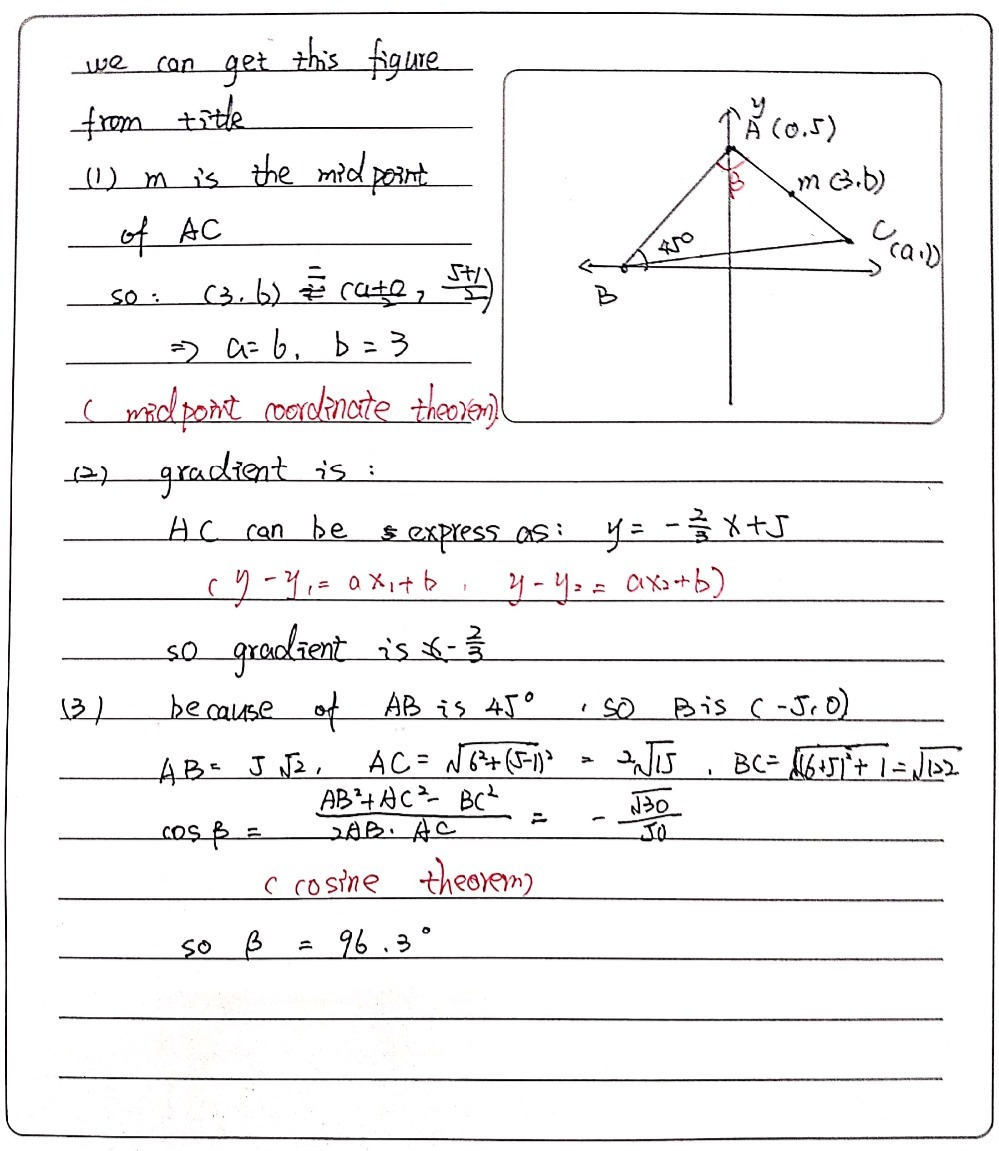 we can get this figure
from title
(1) m is the midpoint
of AC
so : (3, b) = (a+0/2, 5+1/2)
⇒ a = 6, b = 3
( midpoint coordinate theorem)
y
A (0.5)
β
m (3.b)
C (a.1)
45°
B
(2) gradient is :
AC can be express as: y = -2/3 x + 5
( y - y₁ = ax₁ + b , y - y₂ = ax₂ + b)
so gradient is -2/3
(3) because of AB is 45° , so B is (-5, 0)
AB = 5√2, AC = √6²+(5-1)² = 2√15 , BC = √(6+5)²+1 = √122
cos β = AB²+AC²-BC²/2AB. AC = - √30/50
( cosine theorem)
so β = 96.3°